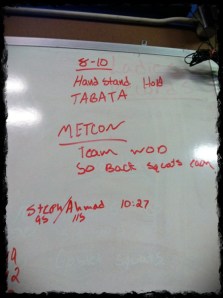 8-10
Handstand Hold
TABATA
METCON
Team WOD
50 Back Squats each
Steph/Ahmad 10:27
95 115
9
2